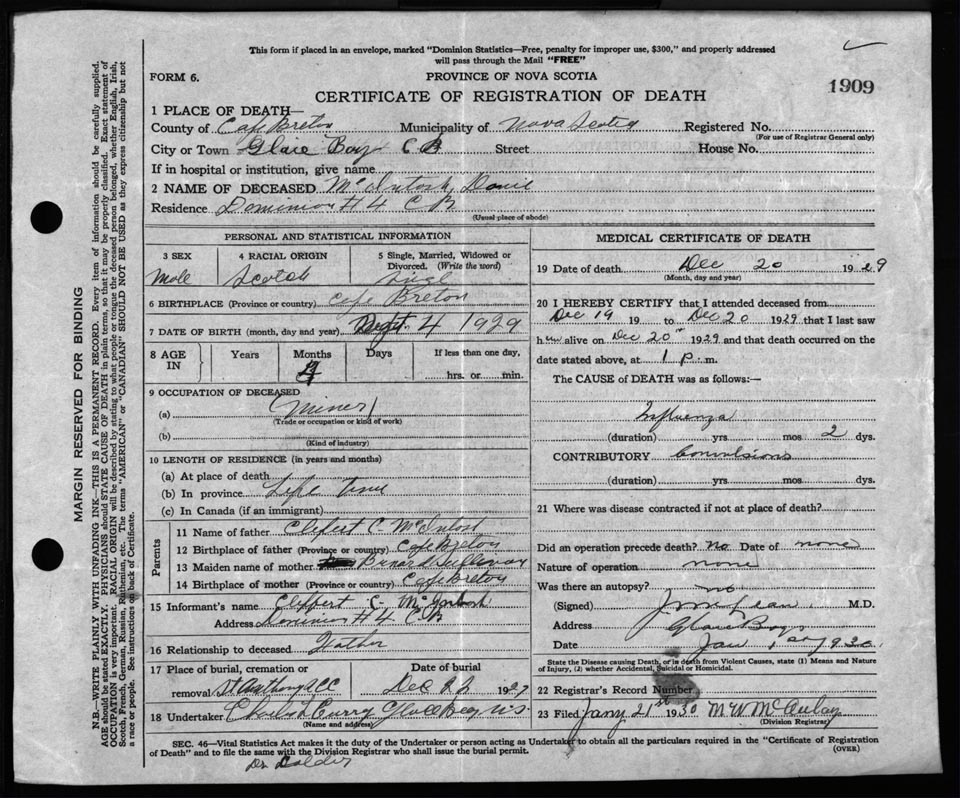 This form if placed in an envelope, marked "Dominion Statistics—Free, penalty for improper use, $300," and properly addressed
will pass through the Mail "FREE"
FORM 6.
PROVINCE OF NOVA SCOTIA
1909
CERTIFICATE OF REGISTRATION OF DEATH
1 PLACE OF DEATH—
County of Cape Breton Municipality of Nova Scotia Registered No.
(For use of Registrar General only)
City or Town Glace Bay C B Street House No.
If in hospital or institution, give name
2 NAME OF DECEASED McIntosh, Daniel
Residence Dominion #4 C B
(Usual place of abode)
PERSONAL AND STATISTICAL INFORMATION
3 SEX 4 RACIAL ORIGIN 5 Single, Married, Widowed or Divorced. (Write the word)
Male Scotch
6 BIRTHPLACE (Province or country) Cape Breton
7 DATE OF BIRTH (month, day and year) 4 1929
8 AGE IN Years Months Days If less than one day,
hrs. or min.
9 OCCUPATION OF DECEASED
(a) Miner
(Trade or occupation or kind of work)
(b)
(Kind of industry)
10 LENGTH OF RESIDENCE (in years and months)
(a) At place of death
(b) In province Life time
(c) In Canada (if an immigrant)
Parents
11 Name of father C. McIntosh
12 Birthplace of father (Province or country) Cape Breton
13 Maiden name of mother
14 Birthplace of mother (Province or country) Cape Breton
15 Informant's name C. McIntosh
Address Dominion #4 C B
16 Relationship to deceased Father
17 Place of burial, cremation or removal St Anthony Date of burial Dec 1929
18 Undertaker Curry Glace Bay N.S.
(Name and address)
MEDICAL CERTIFICATE OF DEATH
19 Date of death Dec 20 1929
(Month, day and year)
20 I HEREBY CERTIFY that I attended deceased from
Dec 19 19 to Dec 20 1929 that I last saw
h alive on Dec 20th 1929 and that death occurred on the
date stated above, at 1 p. m.
The CAUSE of DEATH was as follows:—
Influenza
(duration) yrs mos 2 dys.
CONTRIBUTORY Convulsions
(duration) yrs. mos. dys.
21 Where was disease contracted if not at place of death?
Did an operation precede death? No Date of none
Nature of operation none
Was there an autopsy? no
(Signed) M.D.
Address Glace Bay
Date Jan 1930
State the Disease causing Death, or in death from Violent Causes, state (1) Means and Nature
of Injury, (2) whether Accidental, Suicidal or Homicidal.
22 Registrar's Record Number
23 Filed Jany 21st 1930 M W McAulay
(Division Registrar)
SEC. 46—Vital Statistics Act makes it the duty of the Undertaker or person acting as Undertaker to obtain all the particulars required in the "Certificate of Registration
of Death" and to file the same with the Division Registrar who shall issue the burial permit.
(OVER)
MARGIN RESERVED FOR BINDING
N.B.—WRITE PLAINLY WITH UNFADING INK—THIS IS A PERMANENT RECORD. Every item of information should be carefully supplied.
AGE should be stated EXACTLY. PHYSICIANS should STATE CAUSE OF DEATH in plain terms, so that it may be properly classified. Exact statement of
OCCUPATION is very important. RACIAL ORIGIN will be described by stating to what people or tongue the deceased person belonged, whether English, Irish,
Scotch, French, German, Russian, Ruthenian, etc. The terms "AMERICAN" or "CANADIAN" SHOULD NOT BE USED as they express citizenship but not
a race or people. See instructions on back of Certificate.